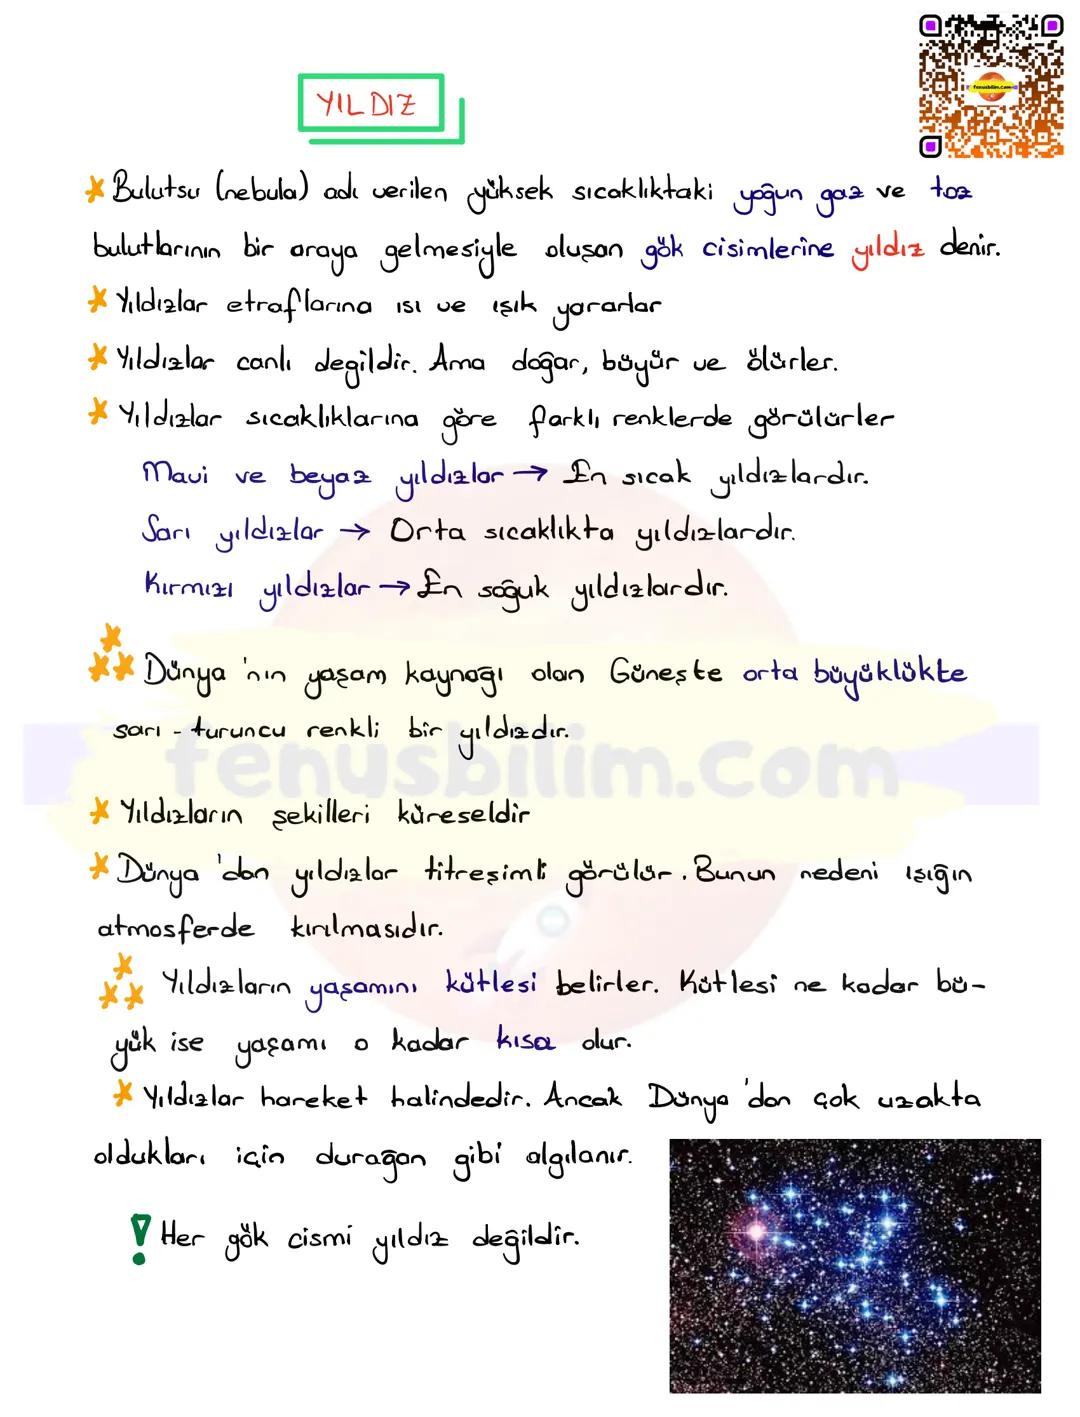 fenusbilim.com
YILDIZ
Bulutsu (nebula) adı verilen yüksek sıcaklıktaki yoğun gaz ve toz
bulutlarının bir araya gelmesiyle oluşan gök cisimlerine yıldız denir.
Yıldızlar etraflarına ısı ve ışık yararlar
Yıldızlar canlı degildir. Ama doğar, büyür ve ölürler.
Yıldızlar sıcaklıklarına göre farklı renklerde görülürler
Mavi ve beyaz yıldızlar → En sıcak yıldızlardır.
Sarı yıldızlar → Orta sıcaklıkta yıldızlardır.
Kırmızı yıldızlar → En soğuk yıldızlardır.
Dünya'nın yaşam kaynağı olan Güneşte orta büyüklükte
sarı - turuncu renkli bir yıldızdır.
fenusbilim.com
Yıldızların şekilleri küreseldir
Dünya'dan yıldızlar titreşimli görülür. Bunun nedeni ışığın
atmosferde kırılmasıdır.
Yıldızların yaşamını kütlesi belirler. Kütlesi ne kadar bü-
yük ise yaşamı o kadar kısa olur.
Yıldızlar hareket halindedir. Ancak Dünya'dan çok uzakta
oldukları için durağan gibi algılanır.
! Her gök cismi yıldız değildir.